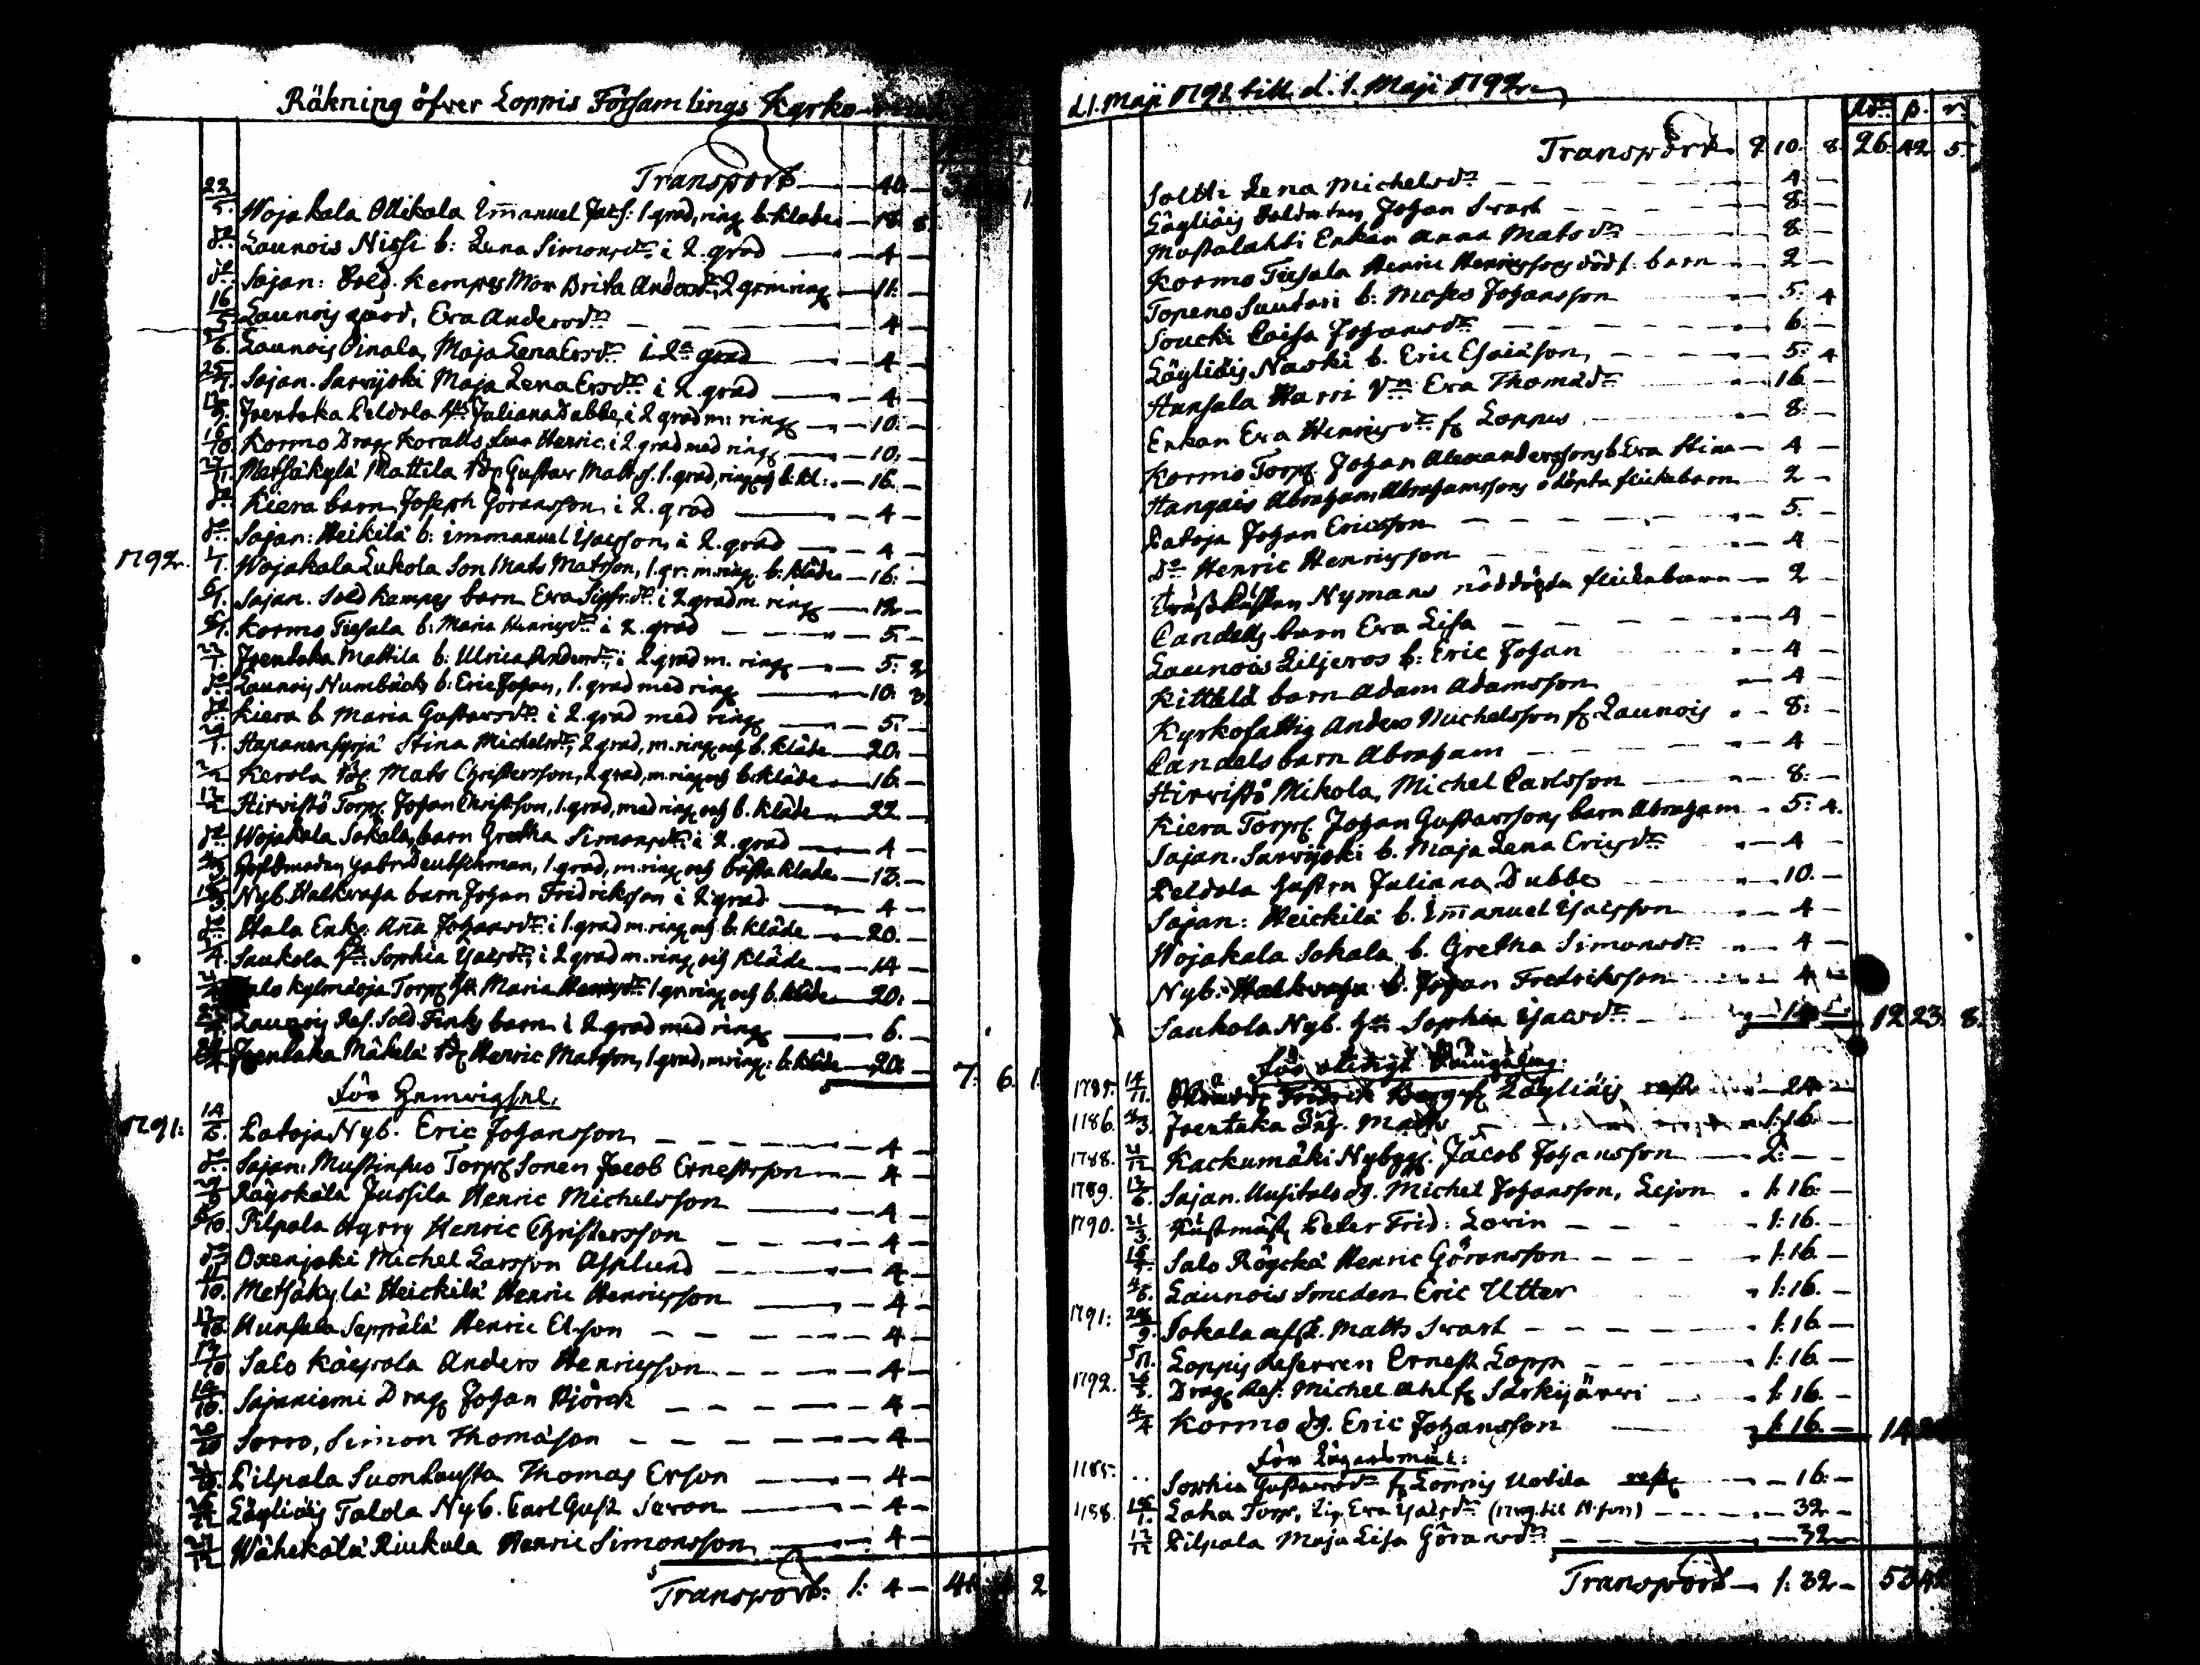 Räkning öfver Loppis Församlings Kyrko
Transport — 40 —
22/5. Wojakala Ollikala Immanuel Jacs: 1. grad, ring b: kläde — 18. 8.
do Launois Nissi b: Lena Simonsdr i 2. grad — 4 —
do Sajan: Sold. Kempes Mor Brita Andersdr, 2 gr m ring — 11: —
16/5 Launois gård, Eva Andersdr — 4 —
Launois Oinala, Maja Lena Ersdr i 2a grad — 4 —
Sajan. Sarvijoki Maja Lena Ersdr i 2. grad — 4 —
Joentaka Peldola hu Juliana Dubbe, i 2 grad m: ring — 10: —
Kormo Drag. Koralls Henric i 2. grad med ring — 10. —
Metsäkylä Mattila Gustav Matts. 1. grad, ring och b: kl: — 16. —
do Kiera barn Joseph Göransson i 2. grad — 4 —
do Sajan: Heikilä b: Immanuel Isacsson i 2. grad — 4 —
1792. Wojakala Lukola Son Mats Matsson, 1. gr: m. ring. b: kläde — 16: —
6/1. Sajan. Sold Kempes barn Eva Sigfr.dr i 2 grad m. ring — 12 —
Kormo Tiesala b: Maria Henricsdr i 2. grad — 5: —
22/1 Joentaka Mattila b: Ulrica Andersdr i 2 grad m. ring — 5: 2
do Launois Numbäck b: Eric Johan, 1. grad med ring — 10: 3.
do Kiera b. Maria Gustavsdr i 2. grad med ring — 5: —
29/1. Hapanensyrjä Stina Michelsdr, 2 grad, m. ring och b. kläde — 20: —
Kerola Mats Christersson, 2 grad, m. ring och b. kläde — 16. —
Hirvistö Torp. Johan Christsson, 1. grad, med ring och b. kläde — 22 —
do Wojakala Sokala, barn Gretha Simonsdr i 2. grad — 4 —
1. grad, m. ring och bästa kläde — 18. —
Nyb. Halkivaha barn Johan Fridriksson i 2 grad — 4 —
do Hala Enk. Anna Johansdr i 1. grad m. ring och b. kläde — 20. —
Saukola hu Sophia Isacsdr, i 2 grad m. ring och kläde — 14 —
Salo Kylmäoja Torp. hu Maria Henricsdr 1 gr. ring och b. kläde — 20: —
Launois Res. Sold Finks barn i 2 grad med ring — 6. —
Joentaka Mäkelä Henric Matsson, 1 grad, m. ring: b: kläde — 20. — 7: 6. 1.
För Hemvigsel.
1791: Latoja Nyb. Eric Johansson — 4 —
do Sajan: Mustinsuo Torp Sonen Jacob Ernestsson — 4 —
Räyskälä Jussila Henric Michelsson — 4 —
Pilpala Hyrry Henric Christersson — 4 —
do Oxenjoki Michel Larsson Asplund — 4 —
Metsäkylä Heickilä Henric Henricsson — 4 —
Hunsala Seppälä Henric Elson — 4 —
Salo Käyrola Anders Henricsson — 4 —
Sajaniemi Drag. Johan Björck — 4 —
Sorro, Simon Thomason — 4 —
Pilpala Suonlausta Thomas Erson — 4 —
Läyliäis Talola Nyb. Carl Gust — 4 —
Wähikälä Riukula Henric Simonsson — 4 —
Transport: 1: 4 — 2
d. 1. Maji 1791 till d. 1. Maji 1792
p. r.
Transport 9 10. 8. 26. 42 5.
Lena Michelsdr — 4 —
Läyliäis Soldaten Johan Svart — 8: —
Mustalahti Enkan Anna Matsdr — 8: —
Kormo Tiesala Henric Henricssons dödf: barn — 2 —
Topeno Sautari b: Moses Johansson — 5: 4
Soucki Caisa Johansdr — 6 —
Läyliäis Naski b. Eric Esaiäson — 5: 4
Hunsala Harri Eva Thomasdr — 16 —
Enkan Eva Henricsdr fr Loppis — 8: —
Kormo Torp. Johan Alexanderssons b. Eva Stina — 4 —
Hangais Abraham Abrahamssons odöpta flickebarn — 2 —
Latoja Johan Ericsson — 5: —
do Henric Henricsson — 4 —
Nymans nöddöpta flickebarn — 2 —
Candells barn Eva Lisa — 4 —
Launois Liljeros b: Eric Johan — 4 —
Kittilä barn Adam Adamsson — 4 —
Kyrkofattig Anders Michelsson fr Launois — 8: —
Candels barn Abraham — 4 —
Hirvistö Mikola, Michel Carlsson — 8: —
Kiera Torp. Johan Gustavssons barn Abraham — 5: 4.
Sajan. Sarvijoki b. Maja Lena Ericsdr — 4 —
Peldola hustru Juliana Dubbe — 10. —
Sajan: Heickilä b. Immanuel Isacsson — 4 —
Wojakala Sokala b. Gretha Simonsdr — 4 —
Nyb. Halkivaha b. Johan Fredriksson — 4 —
Saukola Nyb. hu Sophia Isacsdr — 12 23. 8.
För
1785. Fridrik Berg fr Läyliäis rest — 24 —
1786. Joentaka — 1: 16. —
1788. Kackumäki Nybygg. Jacob Johansson — 2: —
1789. Sajan. Uusitalo dg. Michel Johansson, Lejon 1: 16: —
1790. Peter Frid: Lovin — 1: 16. —
Salo Röyckä Henric Göransson — 1: 16 —
Launois Smeden Eric Utter 1: 16. —
1791: Sokala Matts Svart — 1: 16 —
Loppis Reserven Ernest Lopp — 1: 16. —
1792. Drag. Res: Michel Ahl fr Särkijärvi — 1: 16. —
Kormo dg. Eric Johansson 1: 16. —
För Lägersmål:
1785. Sophia Gustavsdr fr Loppis rest — 16: —
1788. Laha Torp. Eva Isacsdr — 32 —
Pilpala Maja Lisa Göransdr — 32 —
Transport — 1: 32 — 53